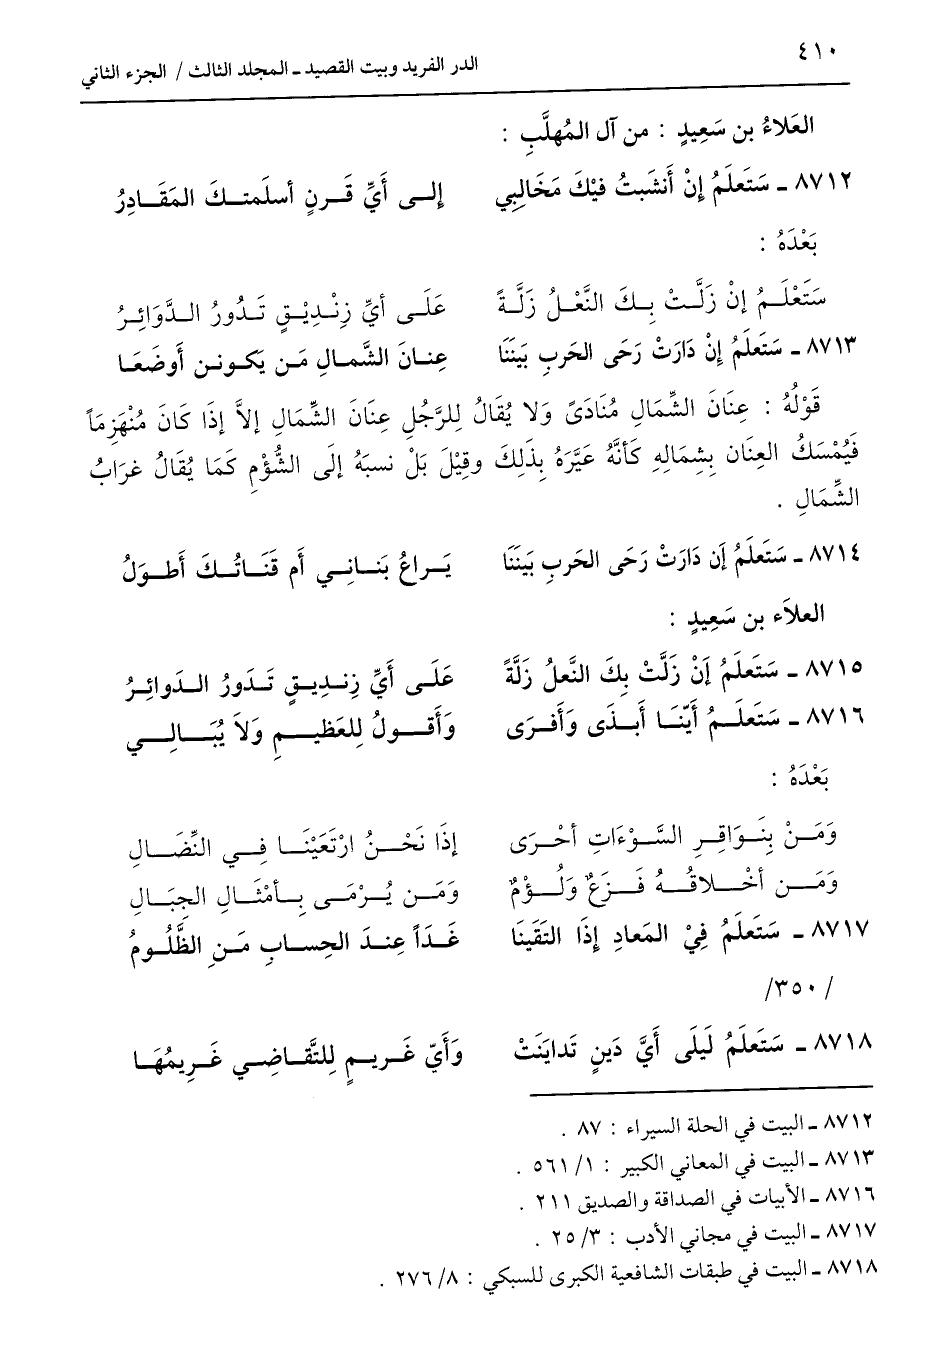 ٤١٠
الدر الفريد وبيت القصيد ـ المجلد الثالث / الجزء الثاني
العَلاءُ بن سَعِيدٍ : من آل المُهلَّبِ :
٨٧١٢ ـ سَتَعلَمُ إنْ أَنشَبتُ فيْكَ مَخَالِبِي إلـى أَيِّ قَـرنٍ أسلَمتـكَ المَقَـادِرُ
بَعْدَهُ :
سَتَعْلَـمُ إنْ زَلَّـتْ بِـكَ النَّعْـلُ زَلَّـةً عَلَـى أيِّ زِنْـدِيْـقٍ تَـدُورُ الـدَّوَائِـرُ
٨٧١٣ ـ سَتَعلَمُ إنْ دَارَتْ رَحَى الحَربِ بَينَنَا عِنـانَ الشَّمـالِ مَـن يَكـونـن أَوضَعَـا
قَوْلُهُ : عِنَانَ الشِّمَالِ مُنَادَىً وَلا يُقَالُ لِلرَّجُلِ عِنَانَ الشِّمَالِ إلاَّ إذَا كَانَ مُنْهَزِمَاً
فَيُمْسَكُ العِنَان بِشِمَالِهِ كَأنَّهُ عَيَّرَهُ بِذَلِكَ وقِيْلَ بَلْ نسبَهُ إلَى الشُّؤْمِ كَمَا يُقَالُ غرَابُ
الشِّمَالِ .
٨٧١٤ ـ سَتَعلَمُ إن دَارَتْ رَحَى الحَربِ بَينَنَا يَـراعُ بَنـانِـي أم قَنَـاتُـكَ أَطـولُ
العلاَء بن سَعِيدٍ :
٨٧١٥ ـ سَتَعلَمُ إنْ زَلَّتْ بِكَ النَّعلُ زَلَّةً عَلَـى أَيِّ زِنـدِيـقٍ تَـدُورُ الـدَوائِـرُ
٨٧١٦ ـ سَتَعلَـمُ أَيِّنَـا أَبـذَى وَأَفـرَى وَأَقـولُ لِلعَظِيـمِ وَلاَ يُبَـالِـي
بَعْدَهُ :
وَمَـنْ بِنَـوَاقِـرِ السَّـوْءَاتِ أحْـرَى إذَا نَحْـنُ ارْتَمَيْنَـا فِـي النِّضَـالِ
وَمَـن أخْـلاقُـهُ فَـزَعٌ وَلُـؤْمٌ وَمَـن يُـرْمَـى بِـأمْثَـالِ الجِبَـالِ
٨٧١٧ ـ سَتَعلَمُ فِيْ المَعادِ إذَا التَقَينَا غَـدَاً عِنـدَ الحِسـابِ مَـنِ الظَّلُـومُ
/٣٥٠ /
٨٧١٨ ـ سَتَعلَمُ لَيلَى أَيَّ دَينٍ تَدايَنَتْ وَأَيّ غَـريـمٍ لِلتَّقَـاضِـي غَـرِيمُهَـا
٨٧١٢ ـ البيت في الحلة السيراء : ٨٧ .
٨٧١٣ ـ البيت في المعاني الكبير : ١/ ٥٦١ .
٨٧١٦ ـ الأبيات في الصداقة والصديق ٢١١ .
٨٧١٧ ـ البيت في مجاني الأدب : ٣/ ٢٥ .
٨٧١٨ ـ البيت في طبقات الشافعية الكبرى للسبكي : ٨/ ٢٧٦ .